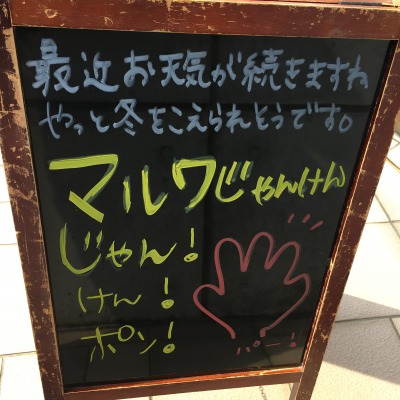 最近お天気が続きますね
やっと冬をこえられそうです。
マルワじゃんけん
じゃん!
けん!
ポン!
パー!